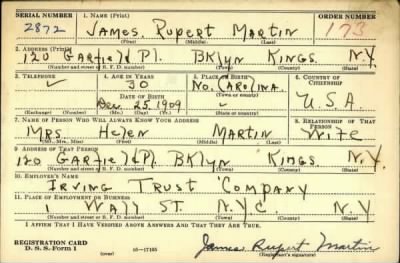 SERIAL NUMBER 1. NAME (Print) ORDER NUMBER
2872 JAMES RUPERT MARTIN 173
(First) (Middle) (Last)
2. ADDRESS (Print)
120 GARFIELD Pl. BKlyn KINGS N.Y.
(Number and street or R. F. D. number) (Town) (County) (State)
3. TELEPHONE 4. AGE IN YEARS 5. PLACE OF BIRTH 6. COUNTRY OF CITIZENSHIP
✓ 30 No. CAROLINA
DATE OF BIRTH (Town or county)
Dec. 25 1909 U.S.A.
(Exchange) (Number) (Mo.) (Day) (Yr.) (State or country)
7. NAME OF PERSON WHO WILL ALWAYS KNOW YOUR ADDRESS 8. RELATIONSHIP OF THAT PERSON
MRS Helen MARTIN WIFE
(Mr., Mrs., Miss) (First) (Middle) (Last)
9. ADDRESS OF THAT PERSON
120 GARFIELD Pl. BKlyn KINGS N.Y.
(Number and street or R. F. D. number) (Town) (County) (State)
10. EMPLOYER'S NAME
IRVING TRUST COMPANY
11. PLACE OF EMPLOYMENT OR BUSINESS
1 WAll ST. N.Y.C. N.Y.
(Number and street or R. F. D. number) (Town) (County) (State)
I AFFIRM THAT I HAVE VERIFIED ABOVE ANSWERS AND THAT THEY ARE TRUE.
REGISTRATION CARD
D. S. S. Form 1 16—17105 James Rupert Martin
(over) (Registrant's signature)